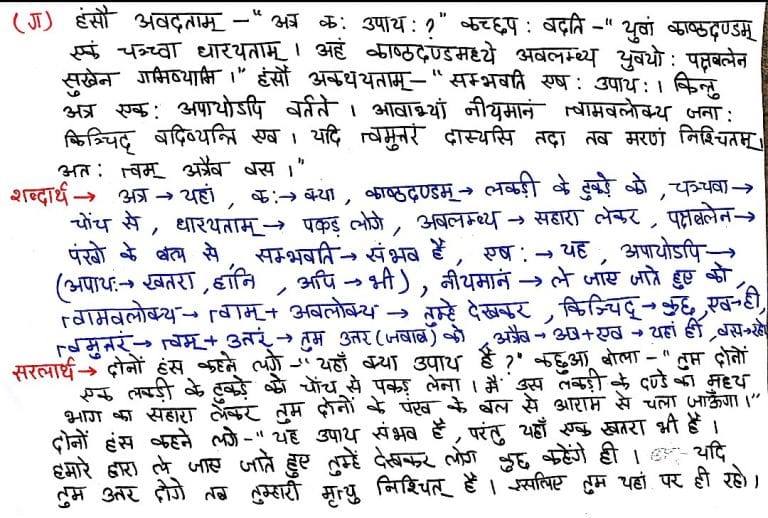 (ग) हंसौ अवदताम् -"अत्र क: उपाय: ?" कच्छप: वदति -"युवां काष्ठदण्डम्
एकं चञ्च्वा धारयताम्। अहं काष्ठदण्डमध्ये अवलम्ब्य युवयो: पक्षबलेन
सुखेन गमिष्यामि।" हंसौ अकथयताम् -"सम्भवति एष: उपाय:। किन्तु
अत्र एक: अपायोऽपि वर्तते। आवाभ्यां नीयमानं त्वामवलोक्य जना:
किञ्चिद् वदिष्यन्ति एव। यदि त्वमुत्तरं दास्यसि तदा तव मरणं निश्चितम्,
अत: त्वम् अत्रैव वस।"
शब्दार्थ→ अत्र→यहां, क:→क्या, काष्ठदण्डम्→लकड़ी के टुकड़े को, चञ्चवा→
चोंच से, धारयताम्→ पकड़ लोगे, अवलम्ब्य→ सहारा लेकर, पक्षबलेन→
पंखों के बल से, सम्भवति→संभव है, एष:→यह, अपायोऽपि→
(अपाय:→खतरा, हानि, अपि→भी), नीयमानं→ले जाए जाते हुए को,
त्वामवलोक्य→त्वाम्+अवलोक्य→ तुम्हे देखकर, किञ्चिद्→कुछ, एव→ही,
त्वमुत्तरं→त्वम्+उत्तरं→तुम उत्तर (जवाब) को, अत्रैव→अत्र+एव→यहां ही, वस→रहो
सरलार्थ→ दोनों हंस कहने लगे -"यहाँ क्या उपाय है?" कछुआ बोला -"तुम दोनों
एक लकड़ी के टुकड़े को चोंच से पकड़ लेना। मैं उस लकड़ी के दण्डे का मध्य
भाग का सहारा लेकर तुम दोनों के पंख के बल से आराम से चला जाऊँगा।"
दोनों हंस कहने लगे -"यह उपाय संभव है, परंतु यहाँ एक खतरा भी है।
हमारे द्वारा ले जाए जाते हुए तुम्हें देखकर लोग कुछ कहेंगे ही। यदि
तुम उत्तर दोगे तब तुम्हारी मृत्यु निश्चित् है। इसलिए तुम यहां पर ही रहो।